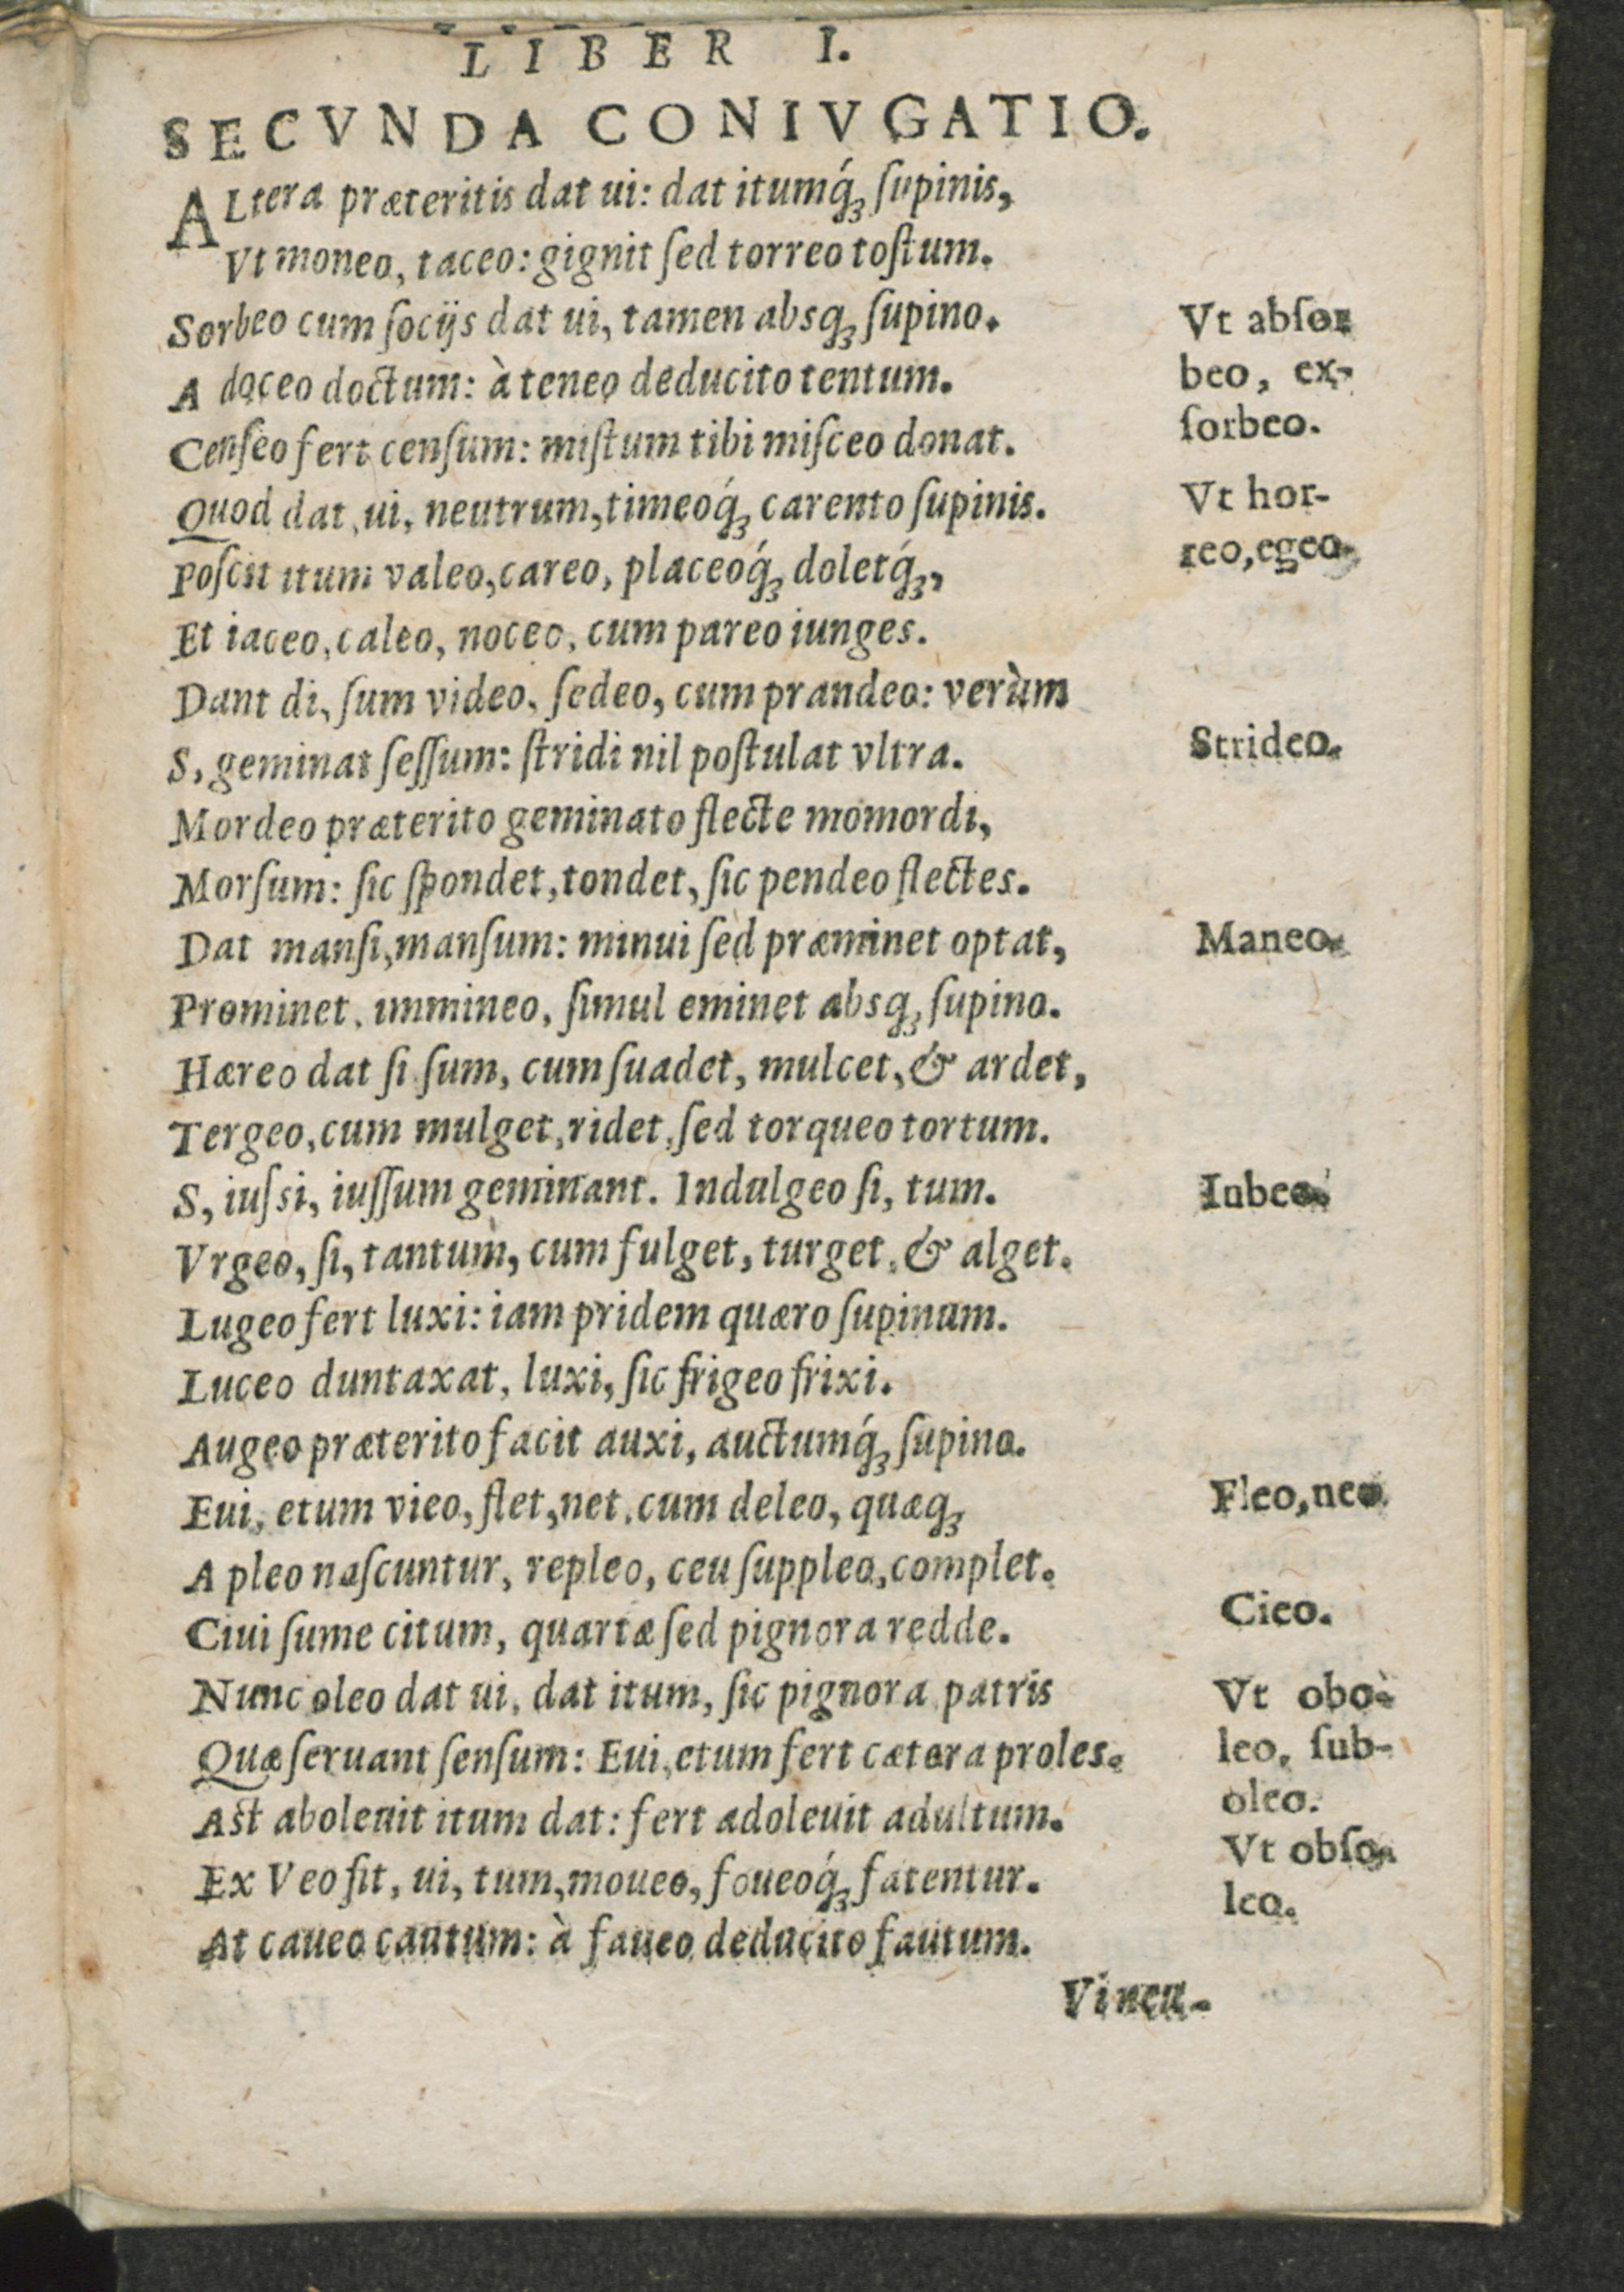 LIBER I.
SECVNDA CONIVGATIO.
ALtera præteritis dat ui: dat itumq́ꝫ ſupinis,
Vt moneo, taceo: gignit ſed torreo toſtum.
Sorbeo cum ſocijs dat ui, tamen absqꝫ ſupino.
Vt abſor-
A doceo doctum: à teneo deducito tentum.
beo, ex-
Cenſeo fert cenſum: miſtum tibi miſceo donat.
ſorbeo.
Quod dat, ui, neutrum, timeoq́ꝫ carento ſupinis.
Vt hor-
Poſcit itum valeo, careo, placeoq́ꝫ doletq́ꝫ,
reo, egeo.
Et iaceo, caleo, noceo, cum pareo iunges.
Dant di, ſum video, ſedeo, cum prandeo: verùm
S, geminat ſeſſum: ſtridi nil poſtulat vltra.
Strideo.
Mordeo præterito geminato flecte momordi,
Morſum: ſic ſpondet, tondet, ſic pendeo flectes.
Dat manſi, manſum: minui ſed præminet optat,
Maneo.
Prominet, immineo, ſimul eminet absqꝫ ſupino.
Hæreo dat ſi ſum, cum ſuadet, mulcet, & ardet,
Tergeo, cum mulget, ridet, ſed torqueo tortum.
S, iuſsi, iuſſum geminant. Indulgeo ſi, tum.
Iubeo.
Vrgeo, ſi, tantùm, cum fulget, turget, & alget.
Lugeo fert luxi: iam pridem quæro ſupinum.
Luceo duntaxat, luxi, ſic frigeo frixi.
Augeo præterito facit auxi, auctumq́ꝫ ſupino.
Eui, etum vieo, flet, net, cum deleo, quæqꝫ
Fleo, neo.
A pleo naſcuntur, repleo, ceu ſuppleo, complet.
Ciui ſume citum, quartæ ſed pignora redde.
Cieo.
Nunc oleo dat ui, dat itum, ſic pignora patris
Vt obo-
Quæ ſeruant ſenſum: Eui, etum fert cætera proles.
leo, ſub-
oleo.
Aſt aboleuit itum dat: fert adoleuit adultum.
Vt obſo-
Ex Veo fit, ui, tum, moueo, foueoq́ꝫ fatentur.
leo.
At caueo cautum: à faueo deducito fautum.
Vincu-